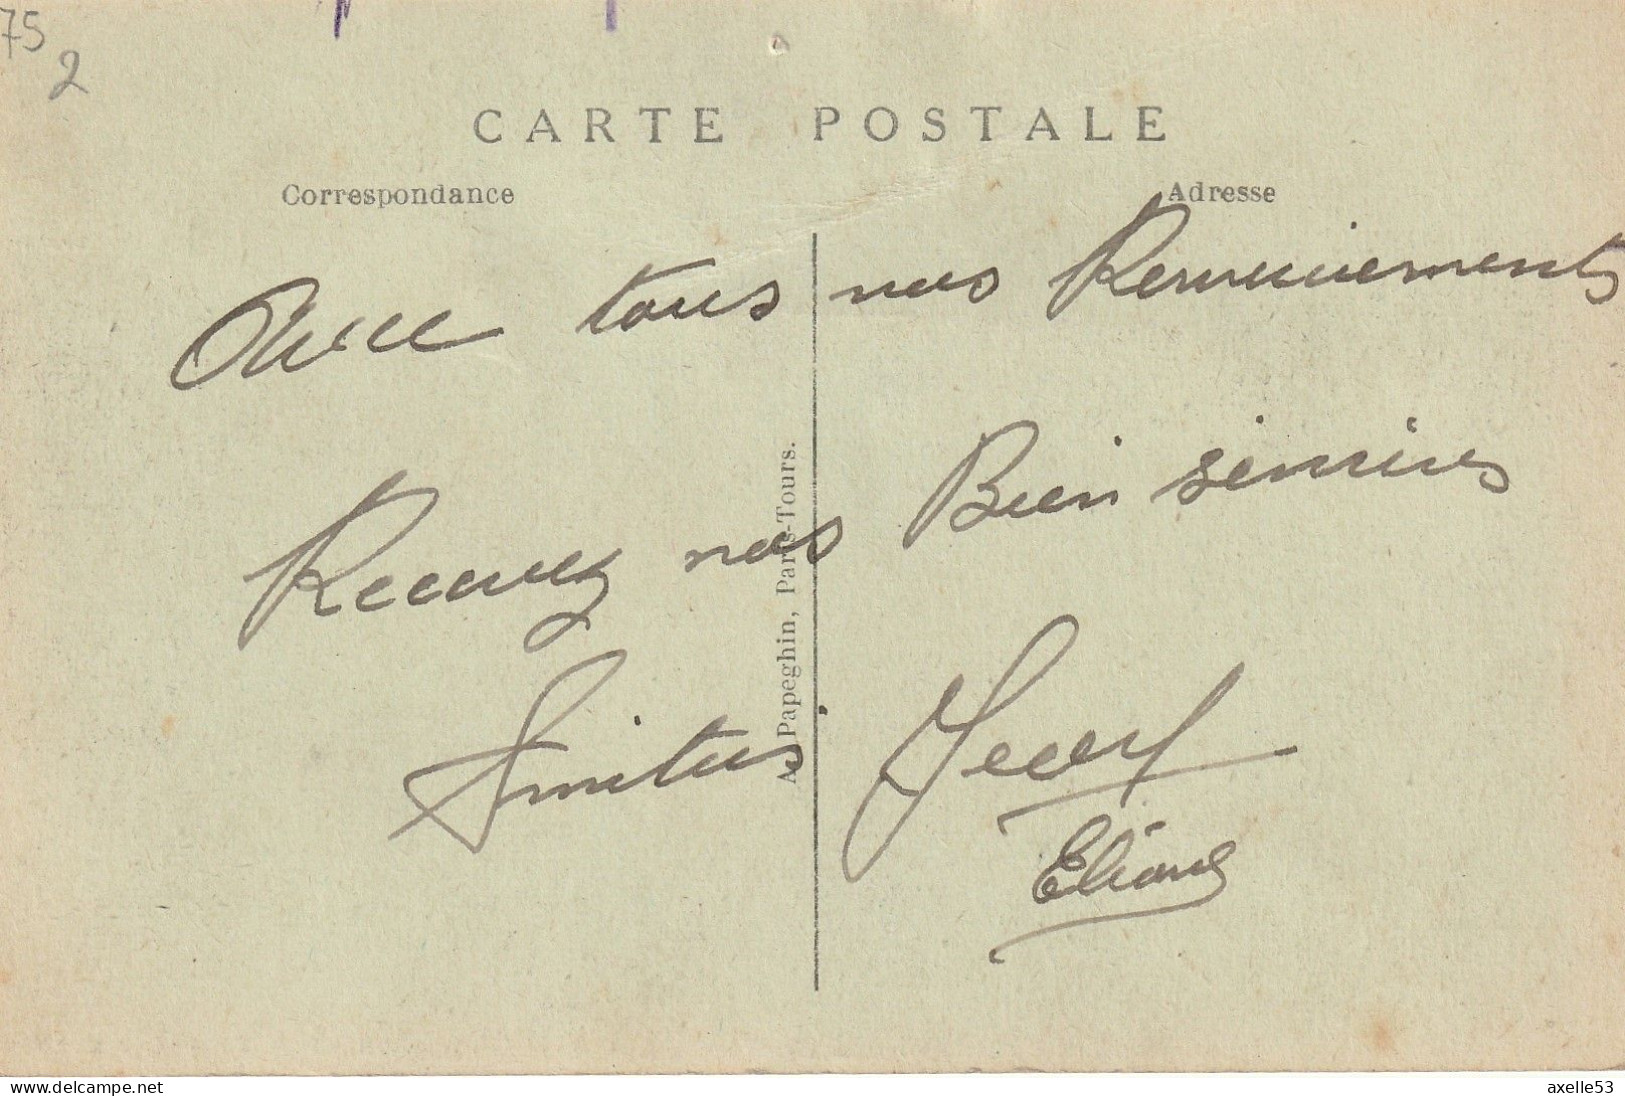 75
2
CARTE POSTALE
Correspondance
Adresse
Avec tous nos Remerciements
Recevez nos Bien sincères
Amitiés
Eliane
A. Papeghin, Paris-Tours.
www.delcampe.net
axelle53